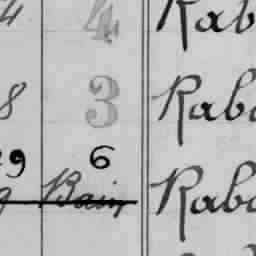 4 4 Rab
8 3 Rab
29 6
Bain Rab